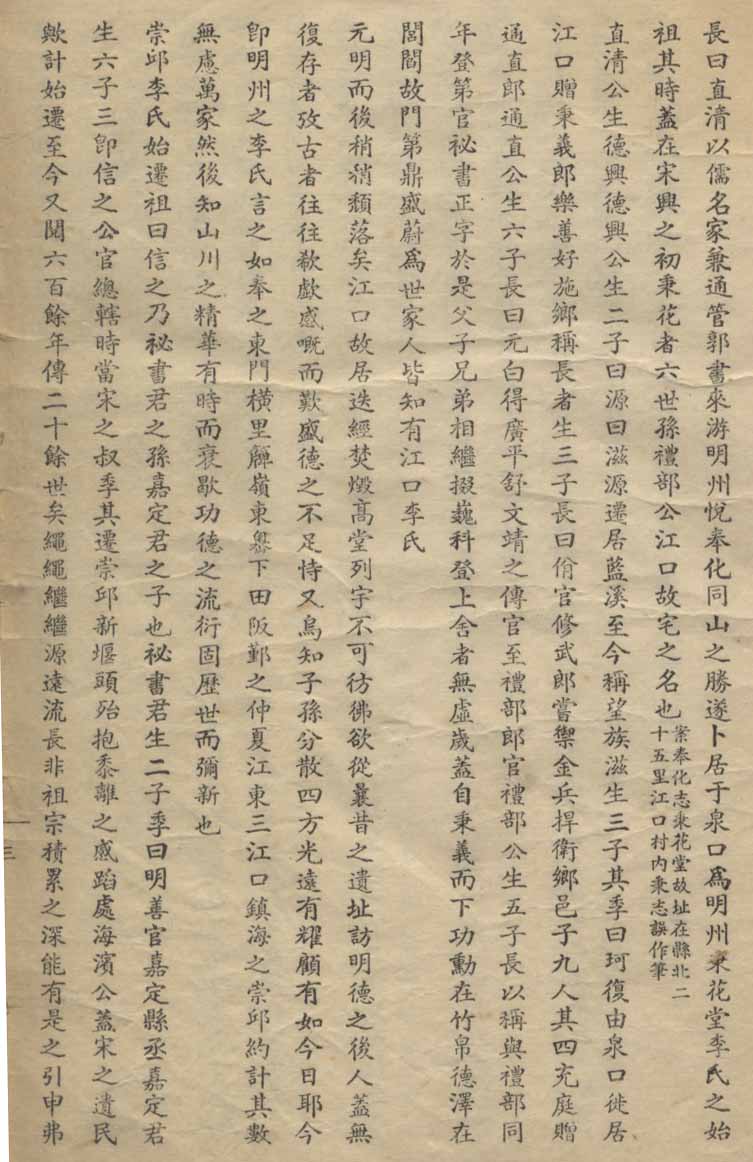 長曰直清以儒名家兼通管郭書來游明州悅奉化同山之勝遂卜居于泉口為明州秉花堂李氏之始
祖其時蓋在宋興之初秉花者六世孫禮部公江口故宅之名也
案奉化志秉花堂故址在縣北二
十五里江口村內秉志誤作筆
直清公生德興德興公生二子曰源曰滋源遷居藍溪至今稱望族滋生三子其季曰珂復由泉口徙居
江口贈秉義郎樂善好施鄉稱長者生三子長曰佾官修武郎嘗禦金兵捍衛鄉邑子九人其四充庭贈
通直郎通直公生六子長曰元白得廣平舒文靖之傳官至禮部郎官禮部公生五子長以稱與禮部同
年登第官祕書正字於是父子兄弟相繼掇巍科登上舍者無虛歲蓋自秉義而下功勳在竹帛德澤在
閭閻故門第鼎盛蔚為世家人皆知有江口李氏
元明而後稍稍頹落矣江口故居迭經焚燬高堂列宇不可彷彿欲從曩昔之遺址訪明德之後人蓋無
復存者攷古者往往欷歔感嘅而歎盛德之不足恃又烏知子孫分散四方光遠有耀顧有如今日耶今
卽明州之李氏言之如奉之東門橫里觶嶺東嶴下田阪鄞之仲夏江東三江口鎮海之崇邱約計其數
無慮萬家然後知山川之精華有時而衰歇功德之流衍固歷世而彌新也
崇邱李氏始遷祖曰信之乃祕書君之孫嘉定君之子也祕書君生二子季曰明善官嘉定縣丞嘉定君
生六子三卽信之公官總轄時當宋之叔季其遷崇邱新堰頭殆抱黍離之感蹈處海濱公蓋宋之遺民
歟計始遷至今又閱六百餘年傳二十餘世矣繩繩繼繼源遠流長非祖宗積累之深能有是之引申弗
三